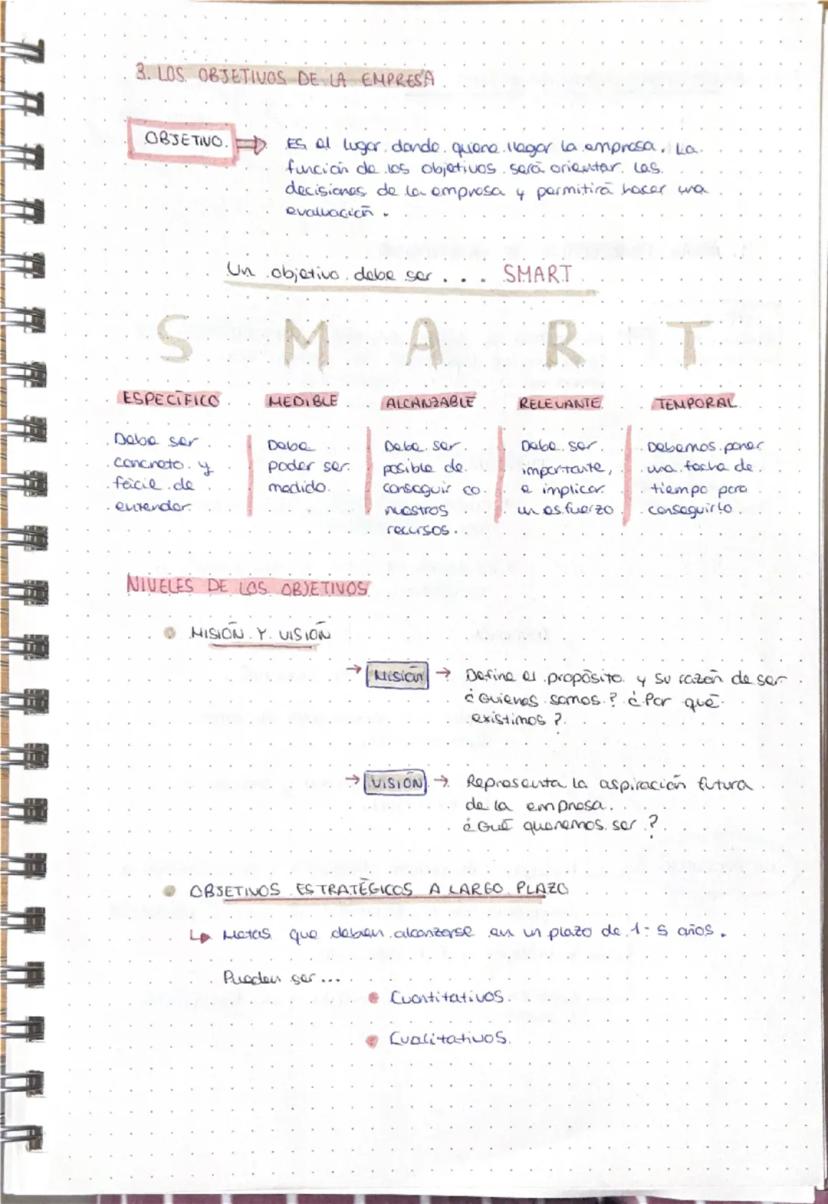 3. LOS OBJETIVOS DE LA EMPRESA
OBJETIVO ⇒ Es el lugar donde quiere llegar la empresa. La
función de los objetivos será orientar las
decisiones de la empresa y permitirá hacer una
evaluación.
Un objetivo debe ser... SMART
S M A R T
ESPECÍFICO MEDIBLE ALCANZABLE RELEVANTE TEMPORAL
Debe ser
concreto y
fácil de
entender
Debe
poder ser
medido.
Debe ser
posible de
conseguir co
nuestros
recursos.
Debe ser
importante,
e implicar
un esfuerzo
Debemos poner
una fecha de
tiempo para
conseguirlo.
NIVELES DE LOS OBJETIVOS
• MISIÓN Y VISIÓN
→ MISIÓN → Define el propósito y su razón de ser
¿Quienes somos? ¿Por qué
existimos?
→ VISIÓN → Representa la aspiración futura
de la empresa.
¿Qué queremos ser?
• OBJETIVOS ESTRATÉGICOS A LARGO PLAZO
↳ Metas que deben alcanzarse en un plazo de 1-5 años.
Pueden ser...
• Cuantitativos.
• Cualitativos.